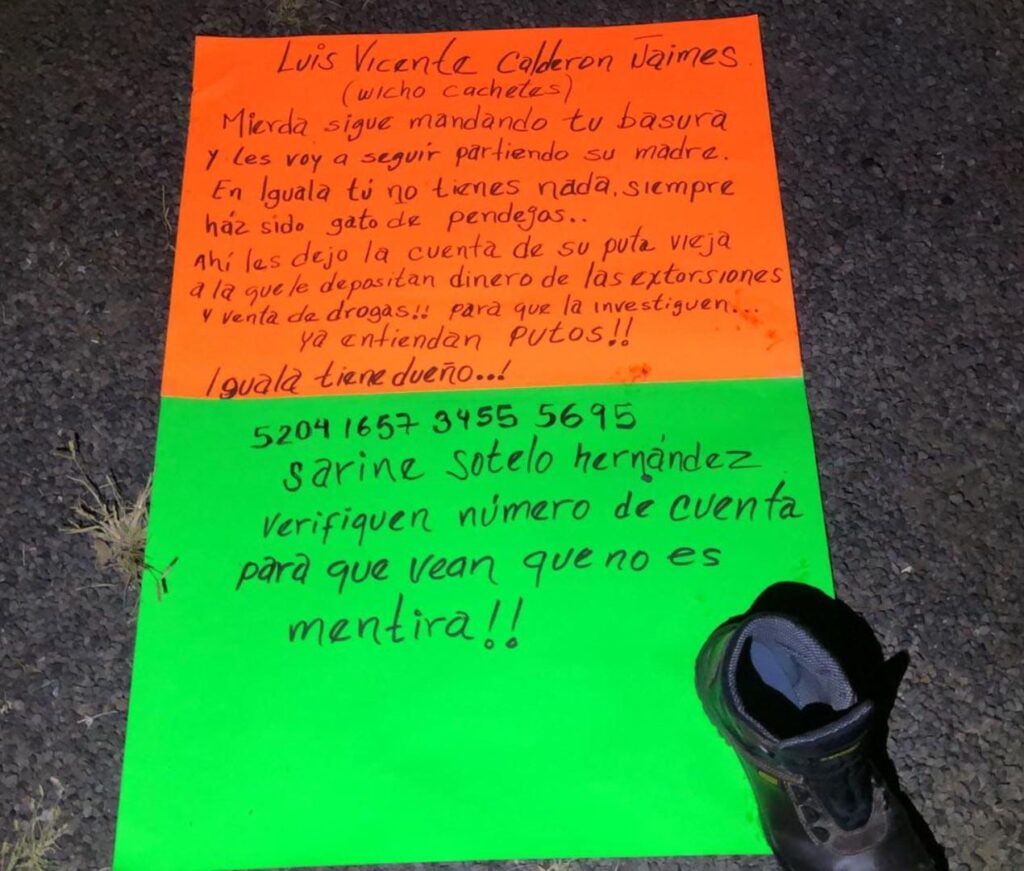 Luis Vicente Calderon Jaimes
(wicho cachetes)
Mierda sigue mandando tu basura
y les voy a seguir partiendo su madre.
En Iguala tú no tienes nada, siempre
ház sido gato de pendegos..
Ahí les dejo la cuenta de su puta vieja
a la que le depositan dinero de las extorsiones
y venta de drogas!! para que la investiguen...
ya entiendan putos!!
Iguala tiene dueño...!
5204 1657 3455 5695
sarine sotelo hernández
verifiquen número de cuenta
para que vean que no es
mentira!!